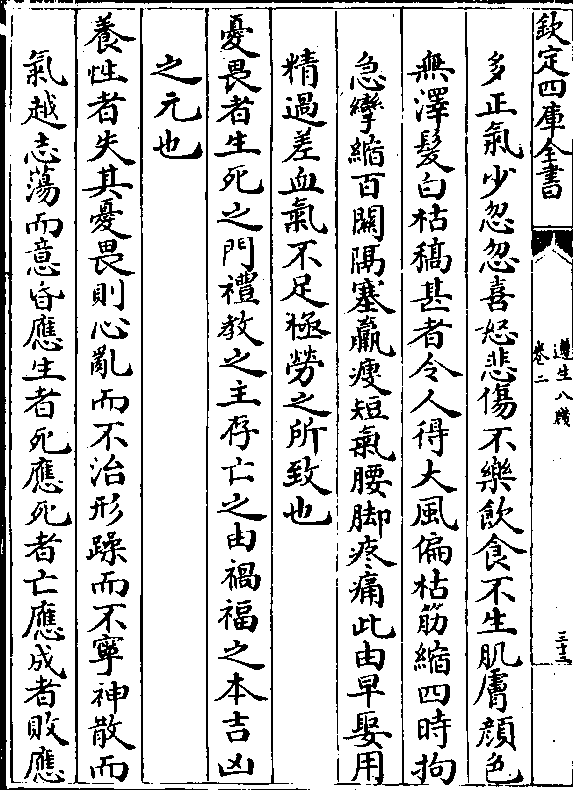 欽定四庫全書
遵生八牋
卷二
三十三
多正氣少忽忽喜怒悲傷不樂飲食不生肌膚顔色
無澤髮白枯槁甚者令人得大風偏枯筋縮四時拘
急攣縮百關隔塞羸瘦短氣腰脚疼痛此由早娶用
精過差血氣不足極勞之所致也
憂畏者生死之門禮教之主存亡之由禍福之本吉凶
之元也
養性者失其憂畏則心亂而不治形躁而不寧神散而
氣越志蕩而意昏應生者死應死者亡應成者敗應